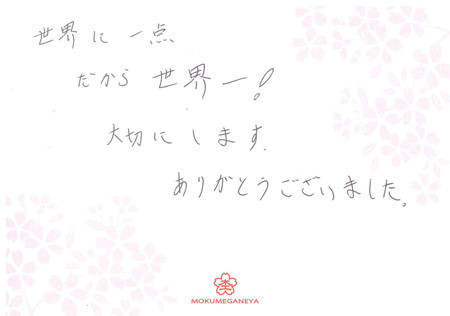 世界に一点
だから世界一!
大切にします.
ありがとうございました。
MOKUMEGANEYA